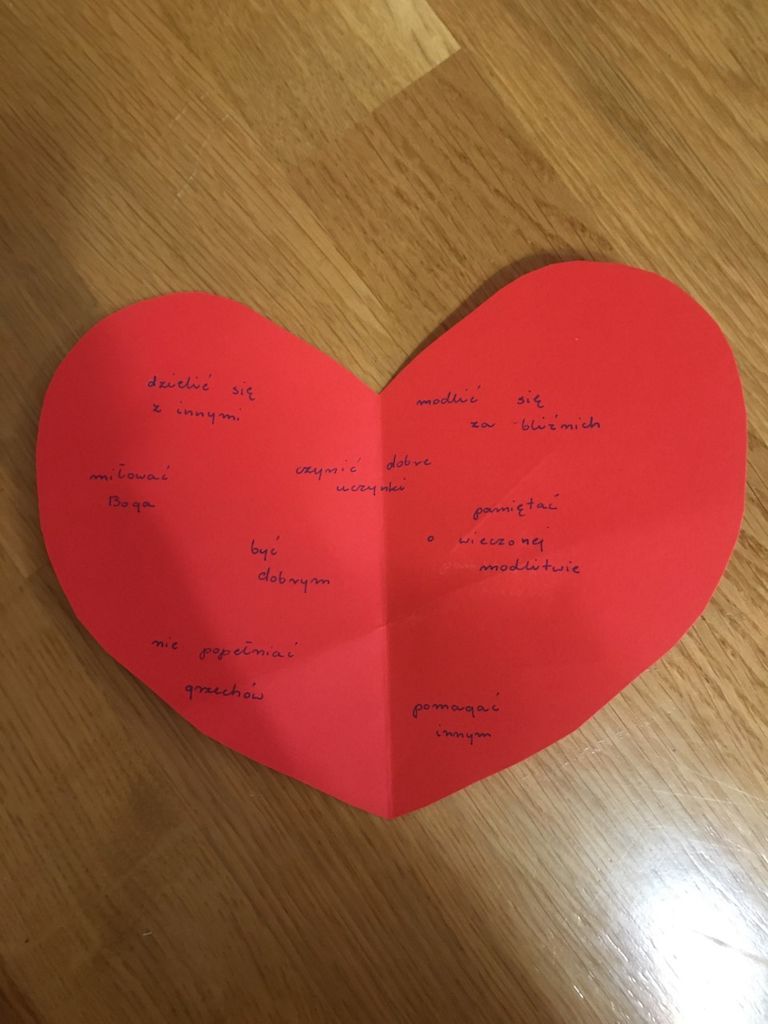 dzielić się
z innymi
modlić się
za bliźnich
miłować
Boga
czynić dobre
uczynki
pamiętać
o wieczonej
modlitwie
być
dobrym
nie popełniać
grzechów
pomagać
innym